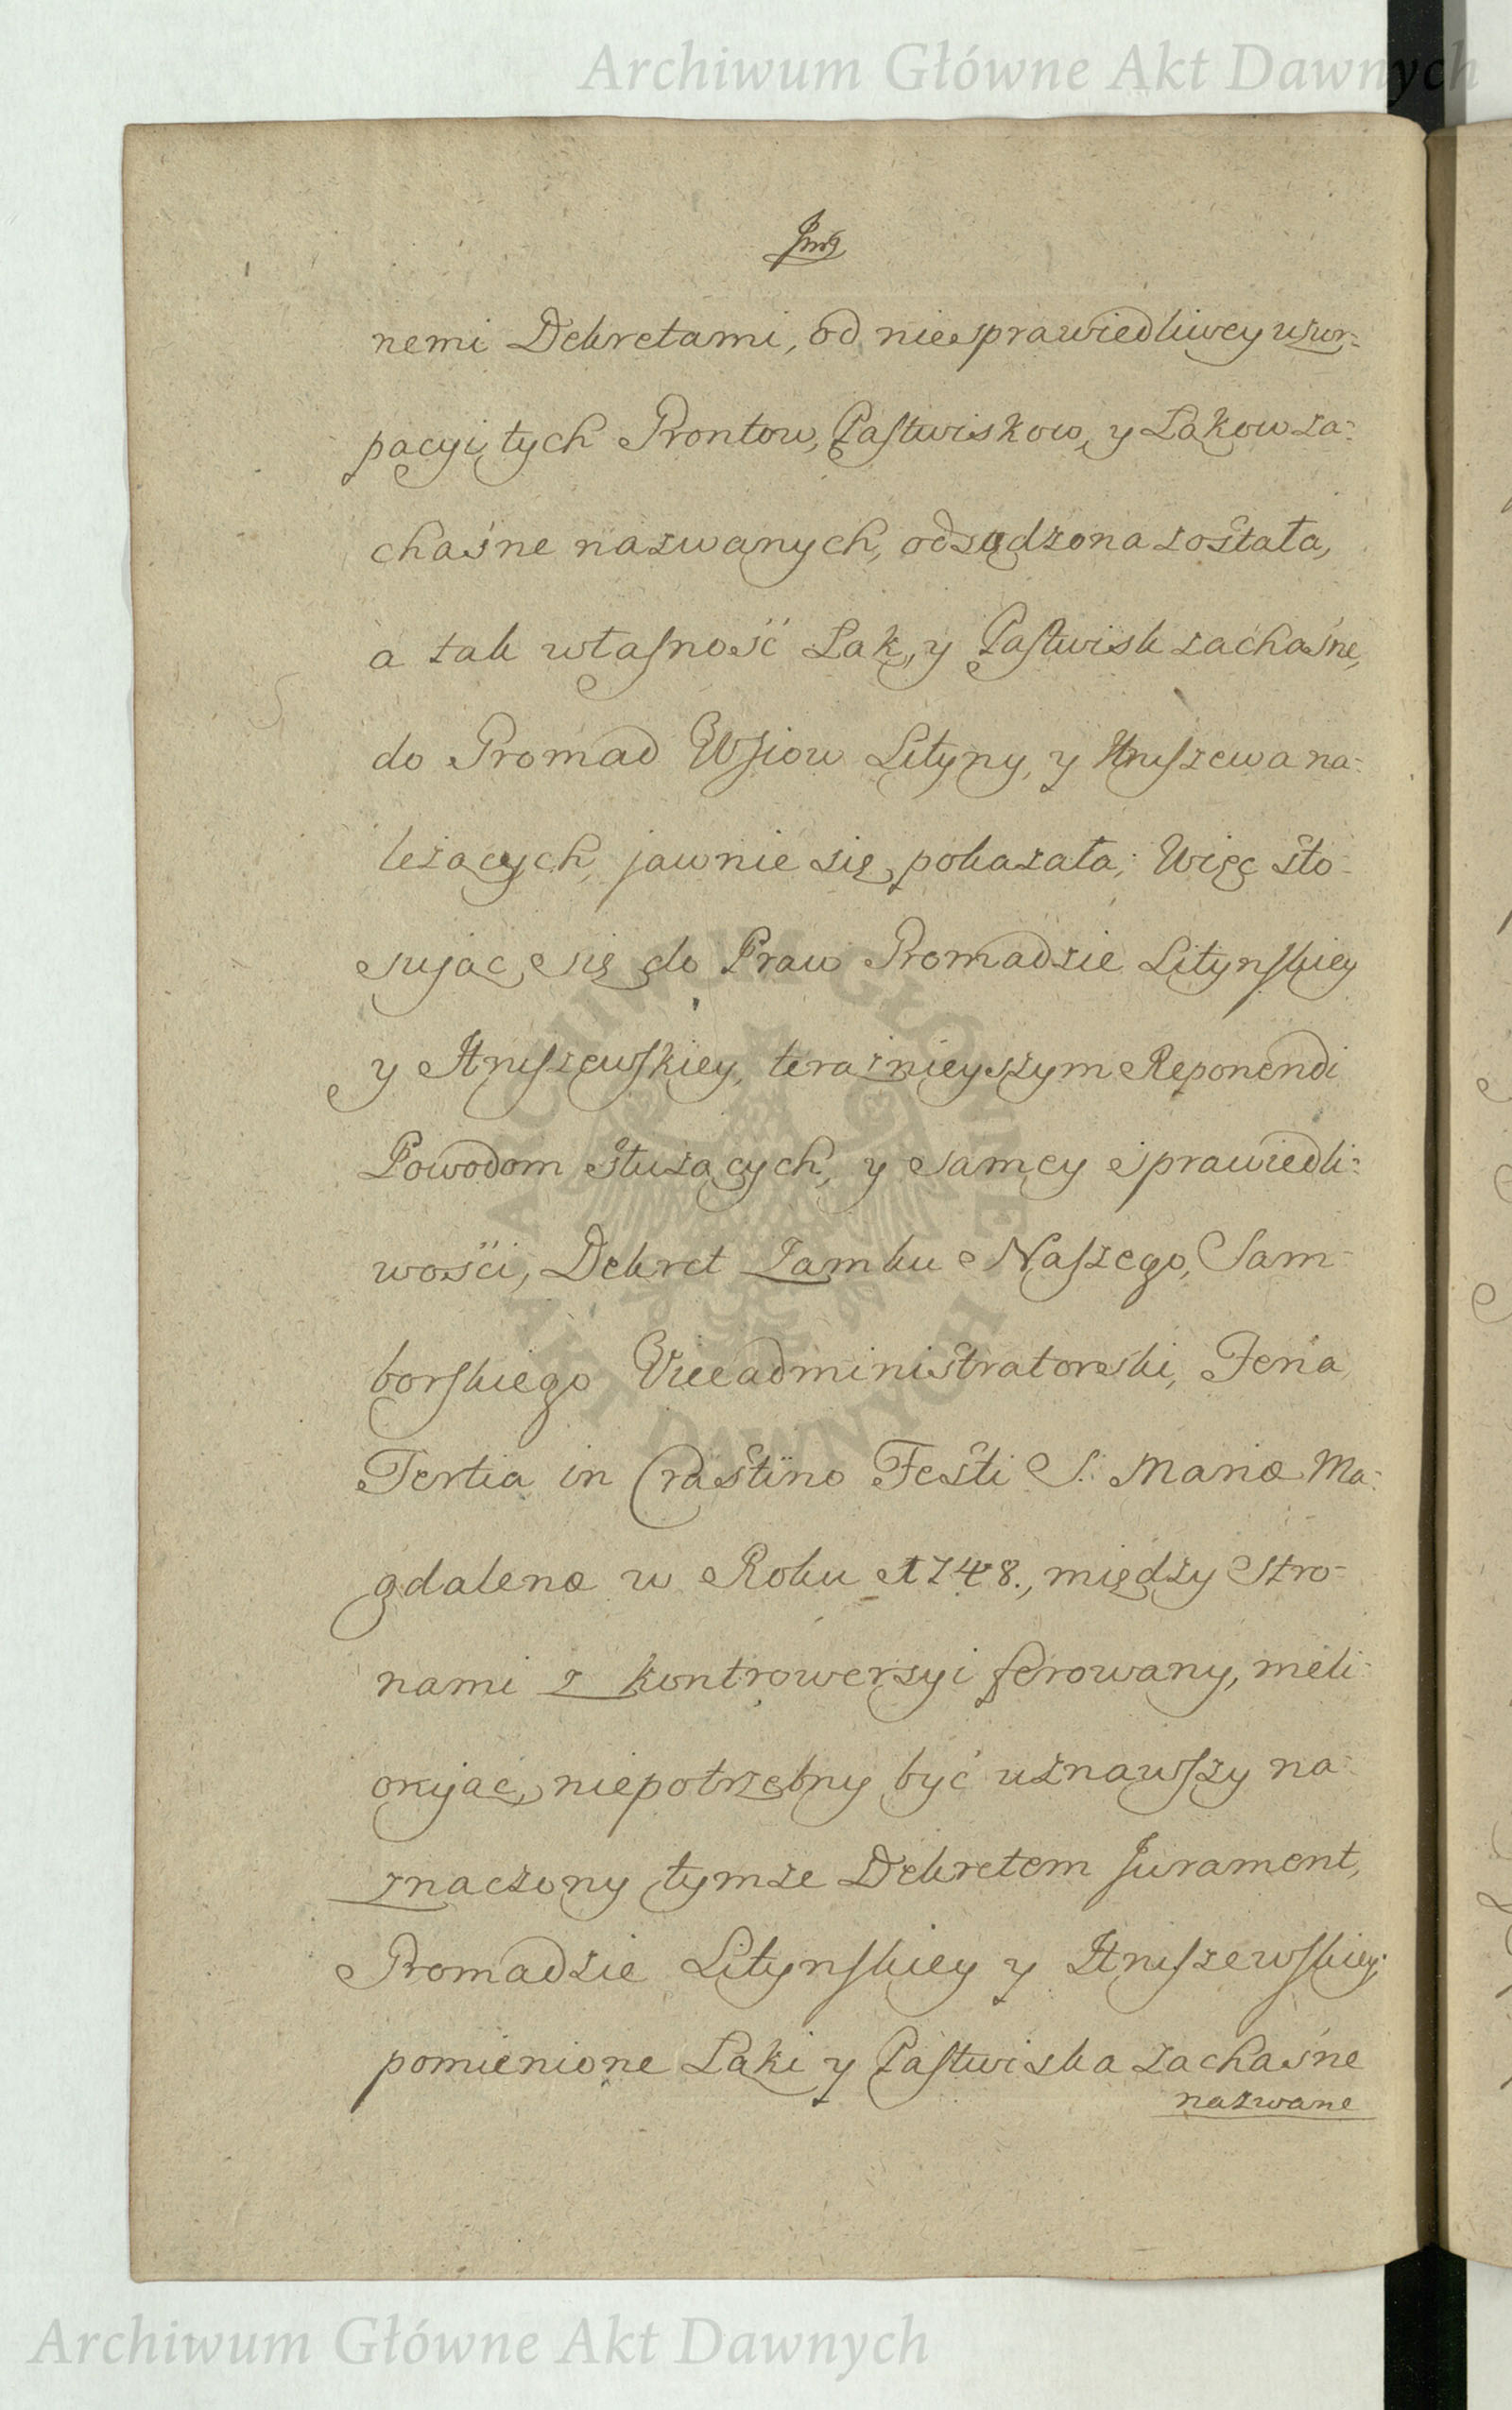 Archiwum Główne Akt Dawnych
nemi Dekretami, od niesprawiedliwey uzur:
pacyi, tych Grontow, Pastwiskow, y Łąkow za:
chaśne nazwanych, odsądzona została,
a tak własność Łąk, y Pastwisk zachaśne,
do Gromad Wsiow Lityny, y Hruszewa na:
leżących, jawnie się pokazała; Więc sto-
sując się do Praw Gromadzie Lityńskiey
y Hruszewskiey, teraźnieyszym Reponendi
Powodom służących, y samey sprawiedli:
wości, Dekret Zamku Naszego, Sam-
borskiego Viceadministratorski, Feria
Tertia in Crastino Festi S. Mariæ Ma:
gdalenæ w Roku 1748., między Stro-
nami z kontrowersyi ferowany, meli-
orując, niepotrzebny być uznawszy na-
znaczony tymże Dekretem Jurament,
Gromadzie Lityńskiey y Hruszewskiey
pomienione Łąki y Pastwiska zachaśne
nazwane
ARCHIWUM GŁÓWNE
AKT DAWNYCH
Archiwum Główne Akt Dawnych